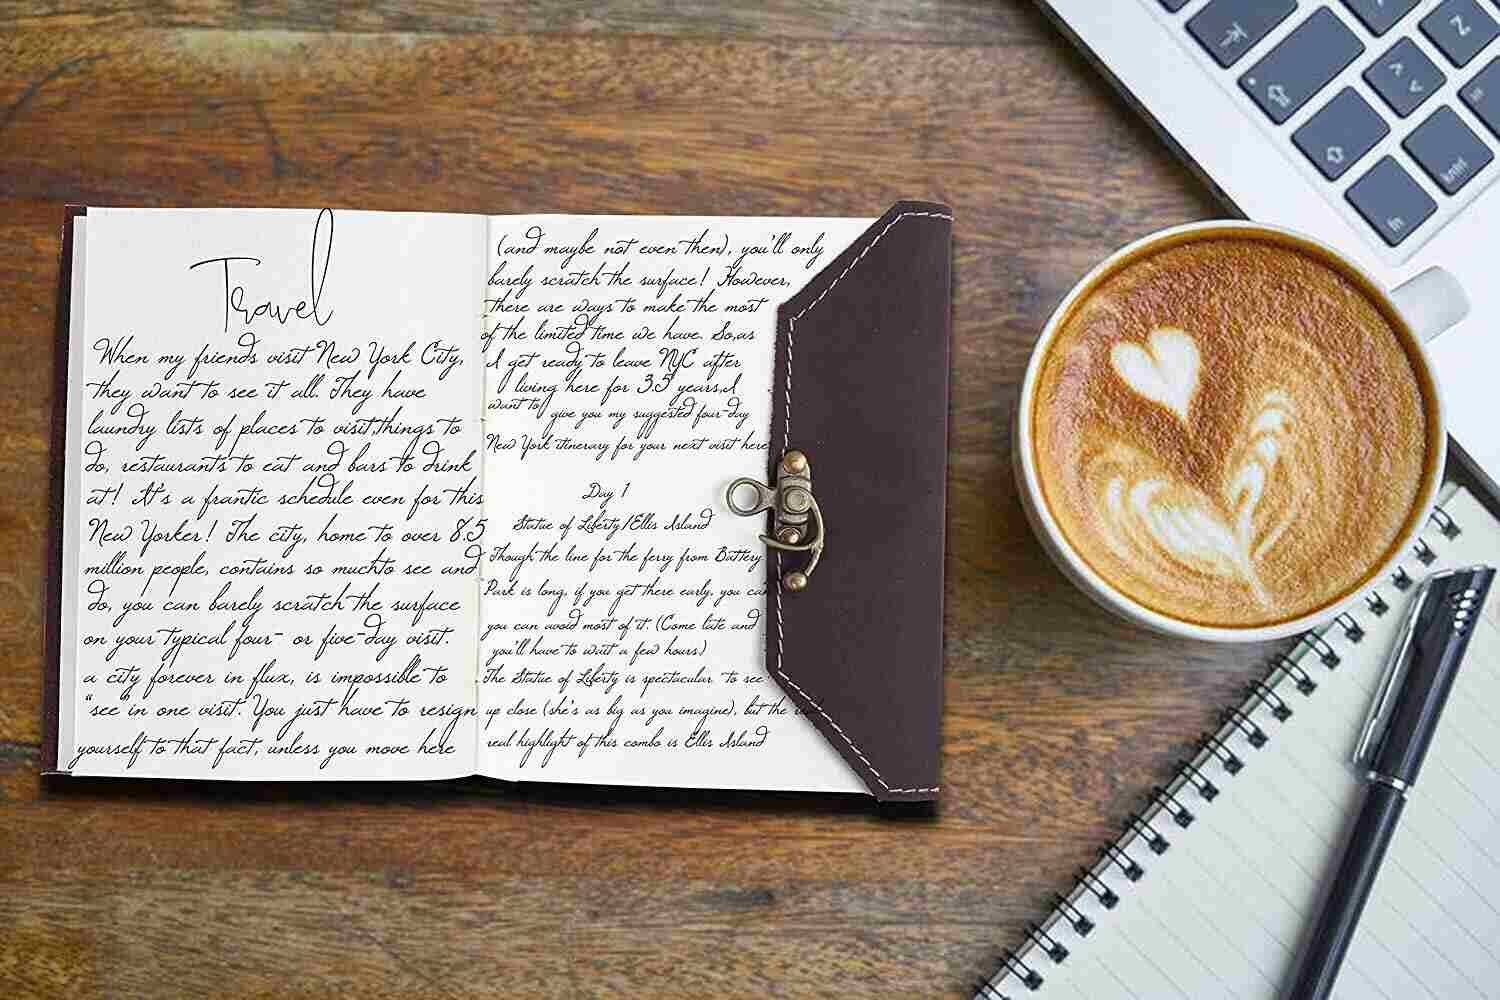 Travel
When my friends visit New York City,
they want to see it all. They have
laundry lists of places to visit,things to
do, restaurants to eat and bars to drink
at! It's a frantic schedule even for this
New Yorker! The city, home to over 8.5
million people, contains so muchto see and
do, you can barely scratch the surface
on your typical four- or five-day visit.
a city forever in flux, is impossible to
"see"in one visit. You just have to resign
yourself to that fact, unless you move here
(and maybe not even then), you'll only
barely scratch the surface! However,
there are ways to make the most
of the limited time we have. So,as
I get ready to leave NYC after
living here for 3.5 years,I
want to
give you my suggested four-day
New York itinerary for your next visit here
Day 1
Statue of Liberty/Ellis Island
Though the line for the ferry from Battery
Park is long, if you get there early, you can
you can avoid most of it. (Come late and
you'll have to wait a few hours.)
The Statue of Liberty is spectacular to see
up close (she's as big as you imagine), but the
real highlight of this combo is Ellis Island
Z
< >
cntrl
fn